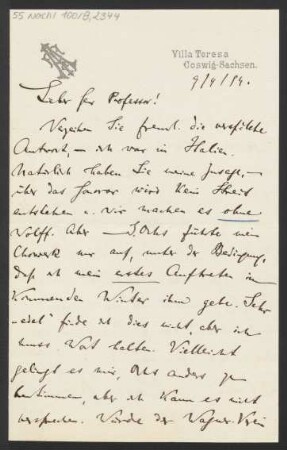 55 Nachl 100/B,2344
Villa Teresa
Coswig-Sachsen.
9/4/94.
Sehr geehrter Professor!
Verzeihen Sie freundl. die verspätete
Antwort, – ich war in Italien.
Natürlich haben Sie meine Zusage, –
über das Honorar wird kein Streit
entstehen u. wir machen es ohne
Wolff. Aber – S. Ochs führte mein
Chorwerk nur auf, unter der Bedingung,
daß ich mein erstes Auftreten im
kommenden Winter ihm gebe. Sehr
„edel" finde ich dies nicht, aber ich
muss Wort halten. Vielleicht
gelingt es mir, Ochs anders zu
bestimmen, aber ich kann es nicht
versprechen. Würde der Wagner-Verein